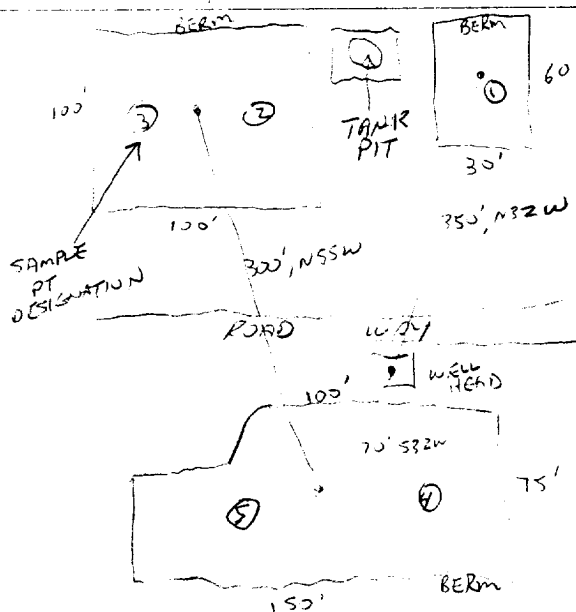 BERM
BERM
100'
3
2
1
60
TANK
PIT
30'
100'
350', N32W
SAMPLE
PT
DESIGNATION
300', N55W
ROAD
WAY
WELL
HEAD
100'
70' S32W
75'
5
4
BERM
150'